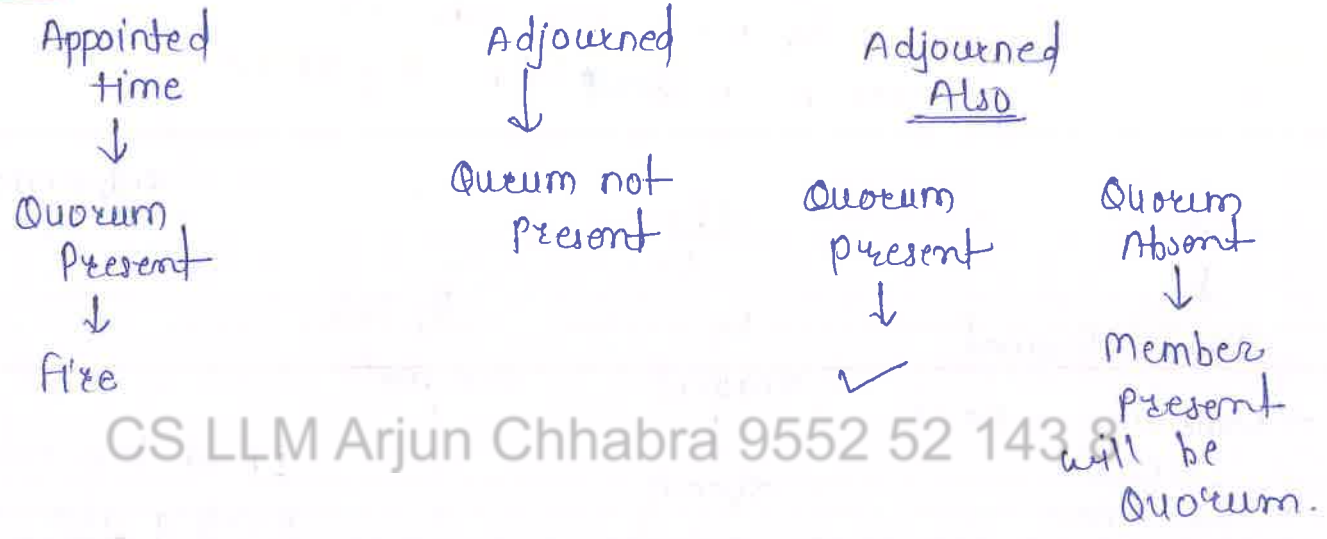 Appointed
time
↓
Quorum
Present
↓
Fire
Adjourned
↓
Qurum not
Present
Adjourned
Also
Quorum
present
↓
✓
Quorum
Absent
↓
Member
Present
will be
Quorum.
CS LLM Arjun Chhabra 9552 52 143 8